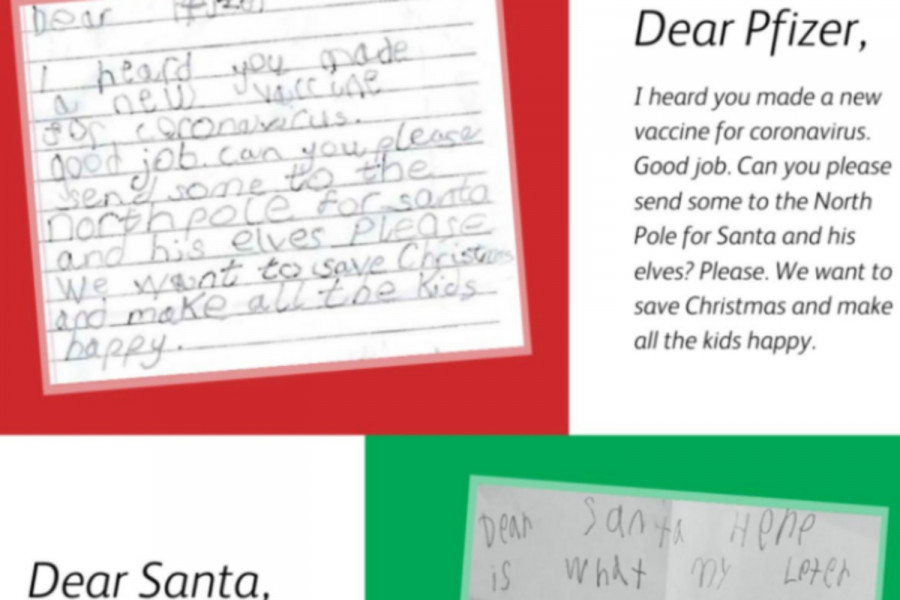 Dear Pfizer,
I heard you made
a new vaccine
for coronavirus.
good job. can you please
send some to the
northpole for santa
and his elves Please
We want to save Christmas
and make all the kids
happy.
Dear Pfizer,
I heard you made a new
vaccine for coronavirus.
Good job. Can you please
send some to the North
Pole for Santa and his
elves? Please. We want to
save Christmas and make
all the kids happy.
Dear Santa,
Dear Santa Hene
is what my Leter